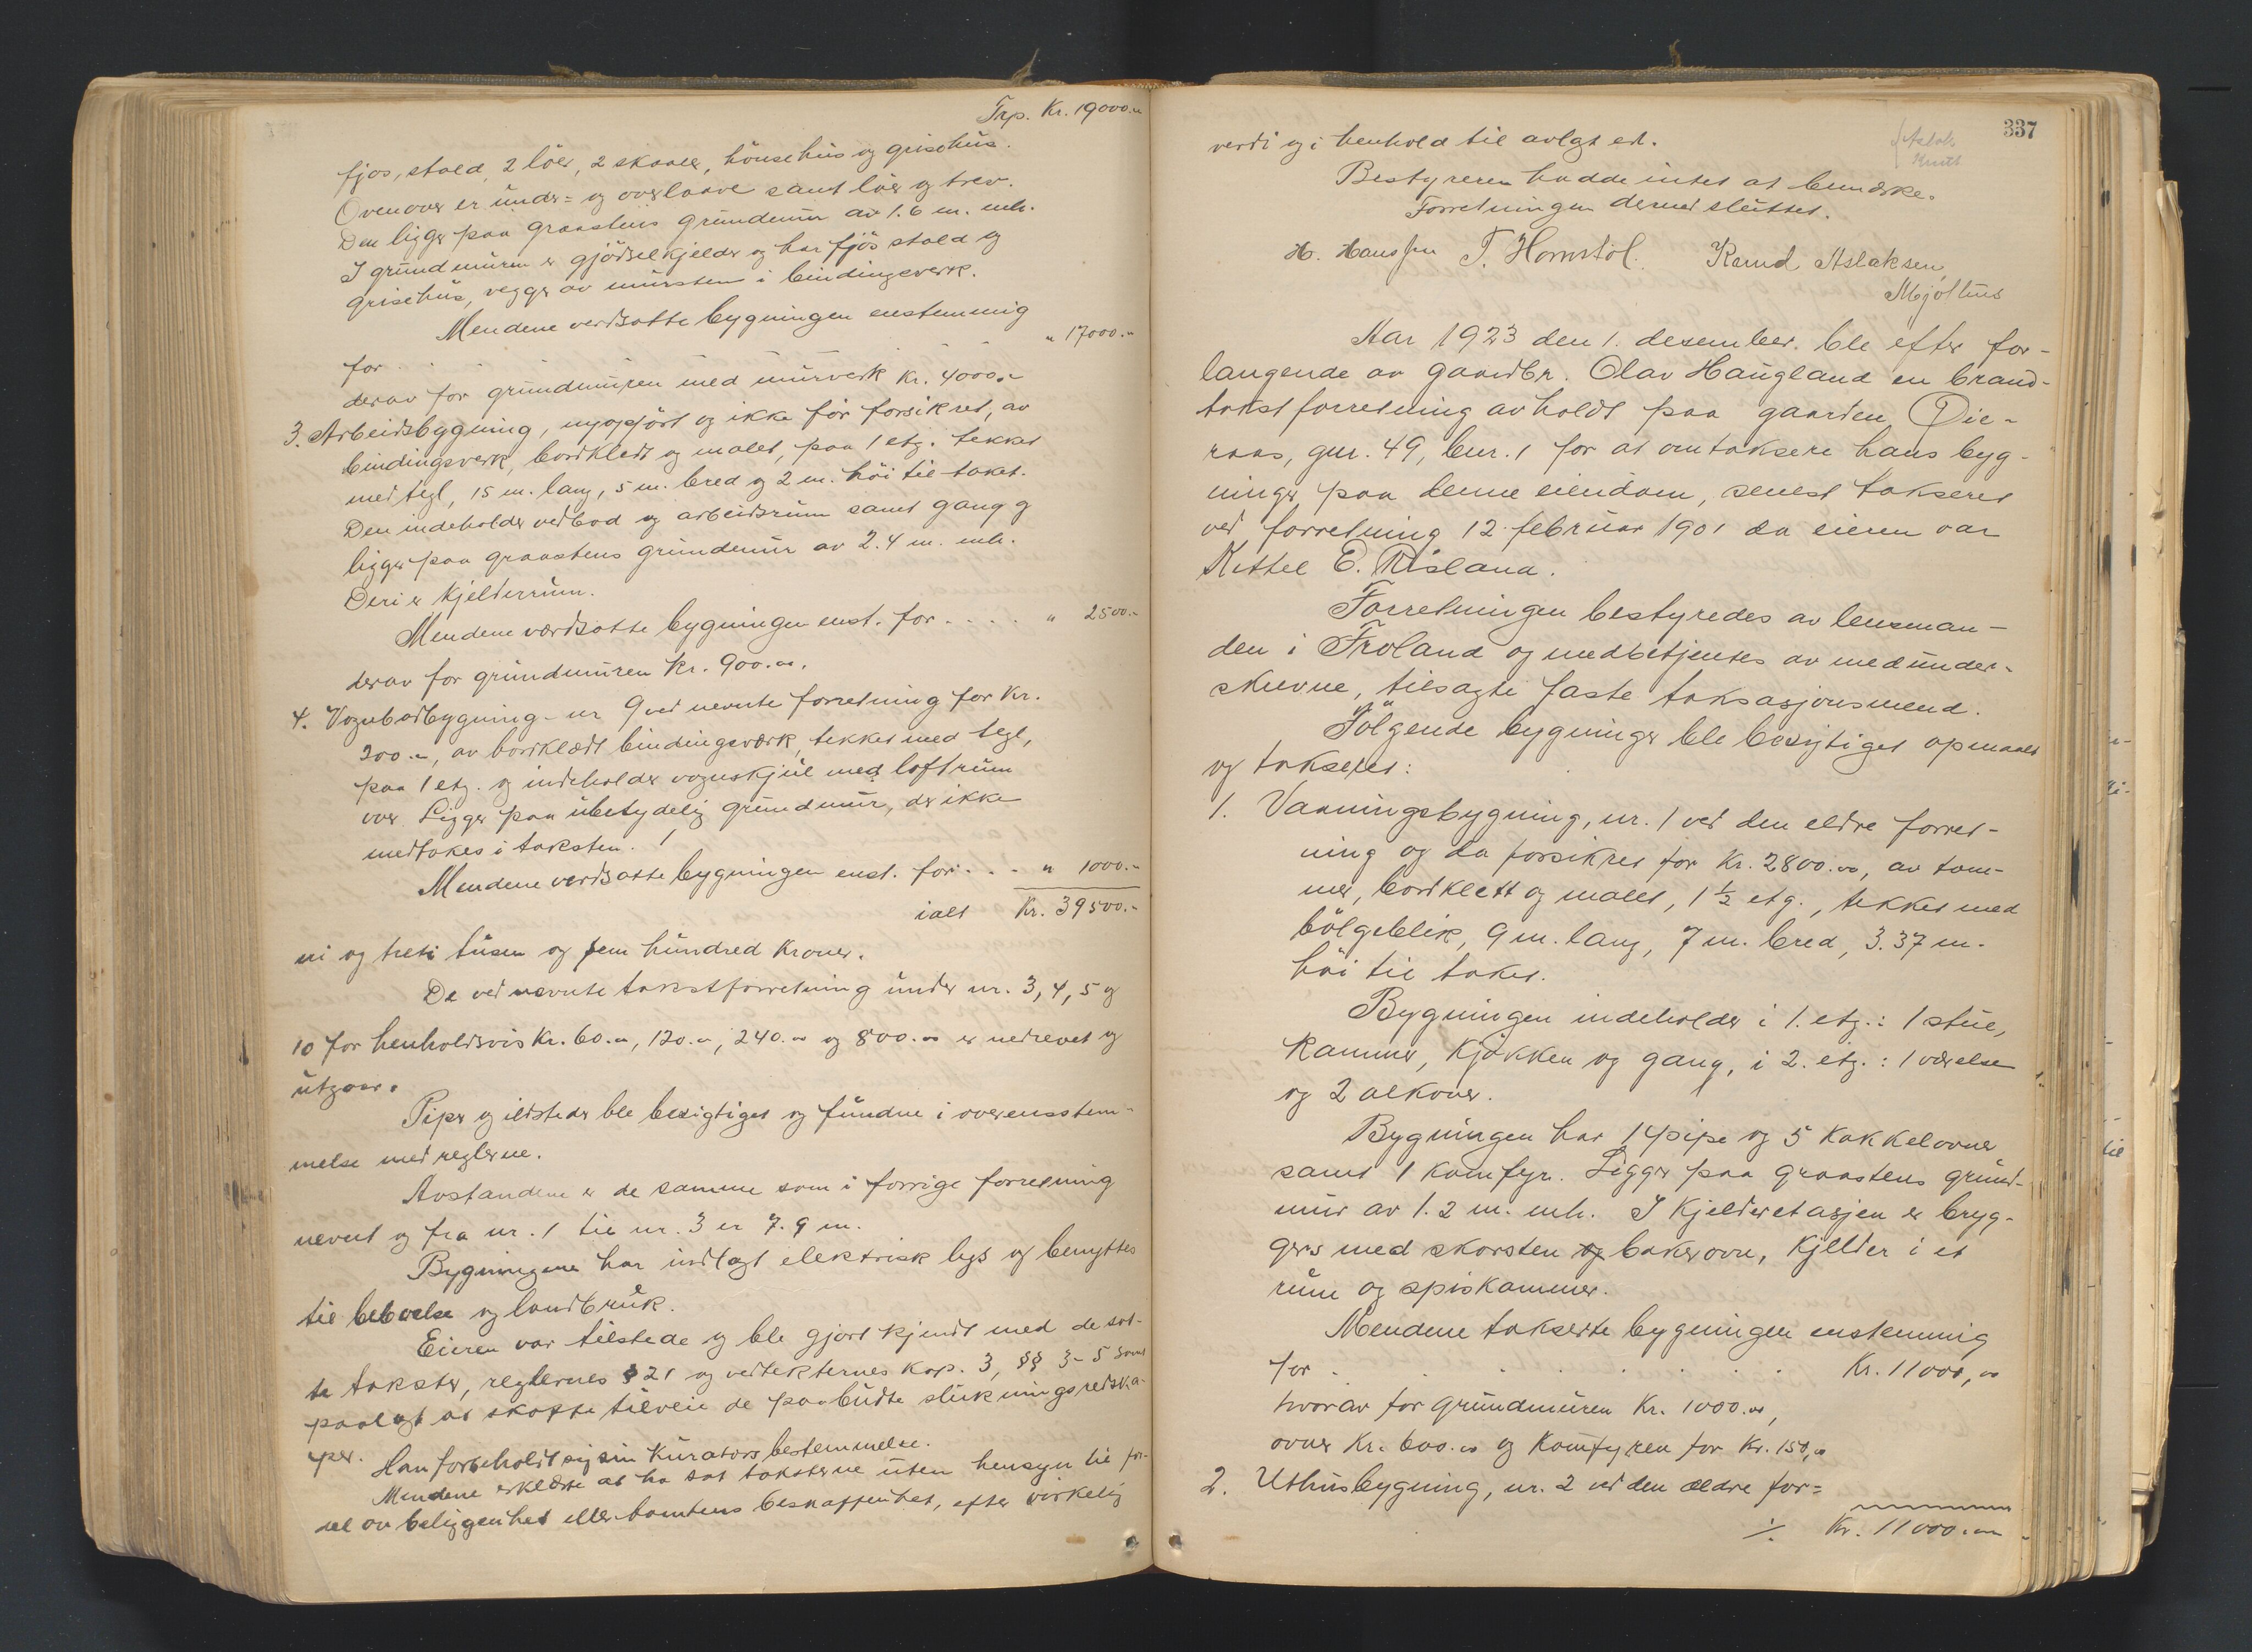 Trp. Kr. 19000.-
fjøs, stald, 2 löer, 2 skaaler, hönsehus og grisehus.
Ovenover er under- og overlaave samt löer og trev.
Den ligger paa graastens grundmur av 1.6 m. mh.
I grundmuren er gjödselkjelder og har fjös stald og
grisehus, vegger av mursten i bindingsverk.
Mendene verdsatte bygningen enstemmig
for . . . " 17000.-
derav for grundmuren med murverk kr. 4000.-
3. Arbeidsbygning, nyopfört og ikke för forsikret, av
bindingsverk, bordkledt og malet, paa 1 etg. tekket
med tegl, 15 m. lang, 5 m. bred og 2 m. höi til taket.
Den indeholder vedbod og arbeidsrum samt gang og
ligger paa graastens grundmur av 2.4 m. mh.
Deri er kjelderrum.
Mendene værdsatte bygningen enst. for . . . . " 2500.-
derav for grundmuren kr. 900.oo.
4. Vognbodbygning - nr 9 ved nevnte forretning for kr.
300.-, av bordklædt bindingsværk, tekket med tegl,
paa 1 etg. og indeholder vognskjul med loftrum
over. Ligger paa ubetydelig grundmur, der ikke
medtakes i taksten.
Mendene verdsatte bygningen enst. for . . . " 1000.-
ialt Kr. 39500.-
ni og treti tusen og fem hundred kroner.
De ved nevnte takstforretning under nr. 3, 4, 5 og
10 for henholdsvis kr. 60.-, 120.-, 240.oo og 800.oo er nedrevet og
utgaar.
Piper og ildsteder ble besigtiget og fundne i overensstem-
melse med reglerne.
Avstandene er de samme som i forrige forretning
nevnt og fra nr. 1 til nr. 3 er 7.9 m.
Bygningene har indlagt elektrisk lys og benyttes
til beboelse og landbruk.
Eieren var tilstede og ble gjort kjendt med de sat-
te takster, reglernes § 21 og vedtekternes kap. 3, §§ 3-5 samt
paalagt at skaffe tilveie de paabudte slukningsredska-
per. Han forbeholdt sig sin kurators bestemmelse.
Mendene erklærte at ha sat taksterne uten hensyn til for-
del av beliggenhet eller tomtens beskaffenhet, efter virkelig
337
Aslak
Knut
verdi og i henhold til avlagt ed.
Bestyreren hadde intet at bemerke.
Forretningen dermed sluttet.
H. Hanssen T. Hornstöl. Kanud Aslaksen,
Mjølhus
Aar 1923 den 1. desember ble efter for-
langende av gaardbr. Olav Haugland en brand-
takstforretning avholdt paa gaarden Øie-
raas, gnr. 49, bnr. 1 for at omtaksere hans byg-
ninger paa denne eiendom, senest takseret
ved forretning 12. februar 1901 da eieren var
Kittel E. Risland.
Forretningen bestyredes av lensman-
den i Froland og medbetjentes av medunder-
skrevne, tilsagte faste taksasjonsmend.
Fölgende bygninger ble besigtiget opmaalt
og takseret:
1. Vaaningsbygning, nr. 1 ved den eldre forret-
ning og da forsikret for kr. 2800.oo, av töm-
mer, bordklett og malet, 1 1/2 etg., tekket med
bölgeblik, 9 m. lang, 7 m. bred, 3.37 m.
höi til taket.
Bygningen indeholder i 1. etg.: 1 stue,
kammer, kjøkken og gang, i 2. etg.: 1 værelse
og 2 alkover.
Bygningen har 1 pipe og 5 kakkelovner
samt 1 komfyr. Ligger paa graastens grund-
mur av 1.2 m. mh. I kjelderetasjen er bryg-
gers med skorsten og bakerovn, kjelder i et
rum og spiskammer.
Mendene takserte bygningen enstemmig
for . . . . . . . Kr. 11000,oo
hvorav for grundmuren kr. 1000.oo,
ovner kr. 600.oo og komfyren for kr. 150,oo
2. Uthusbygning, nr. 2 ved den ældre for-
./. Kr. 11000.oo